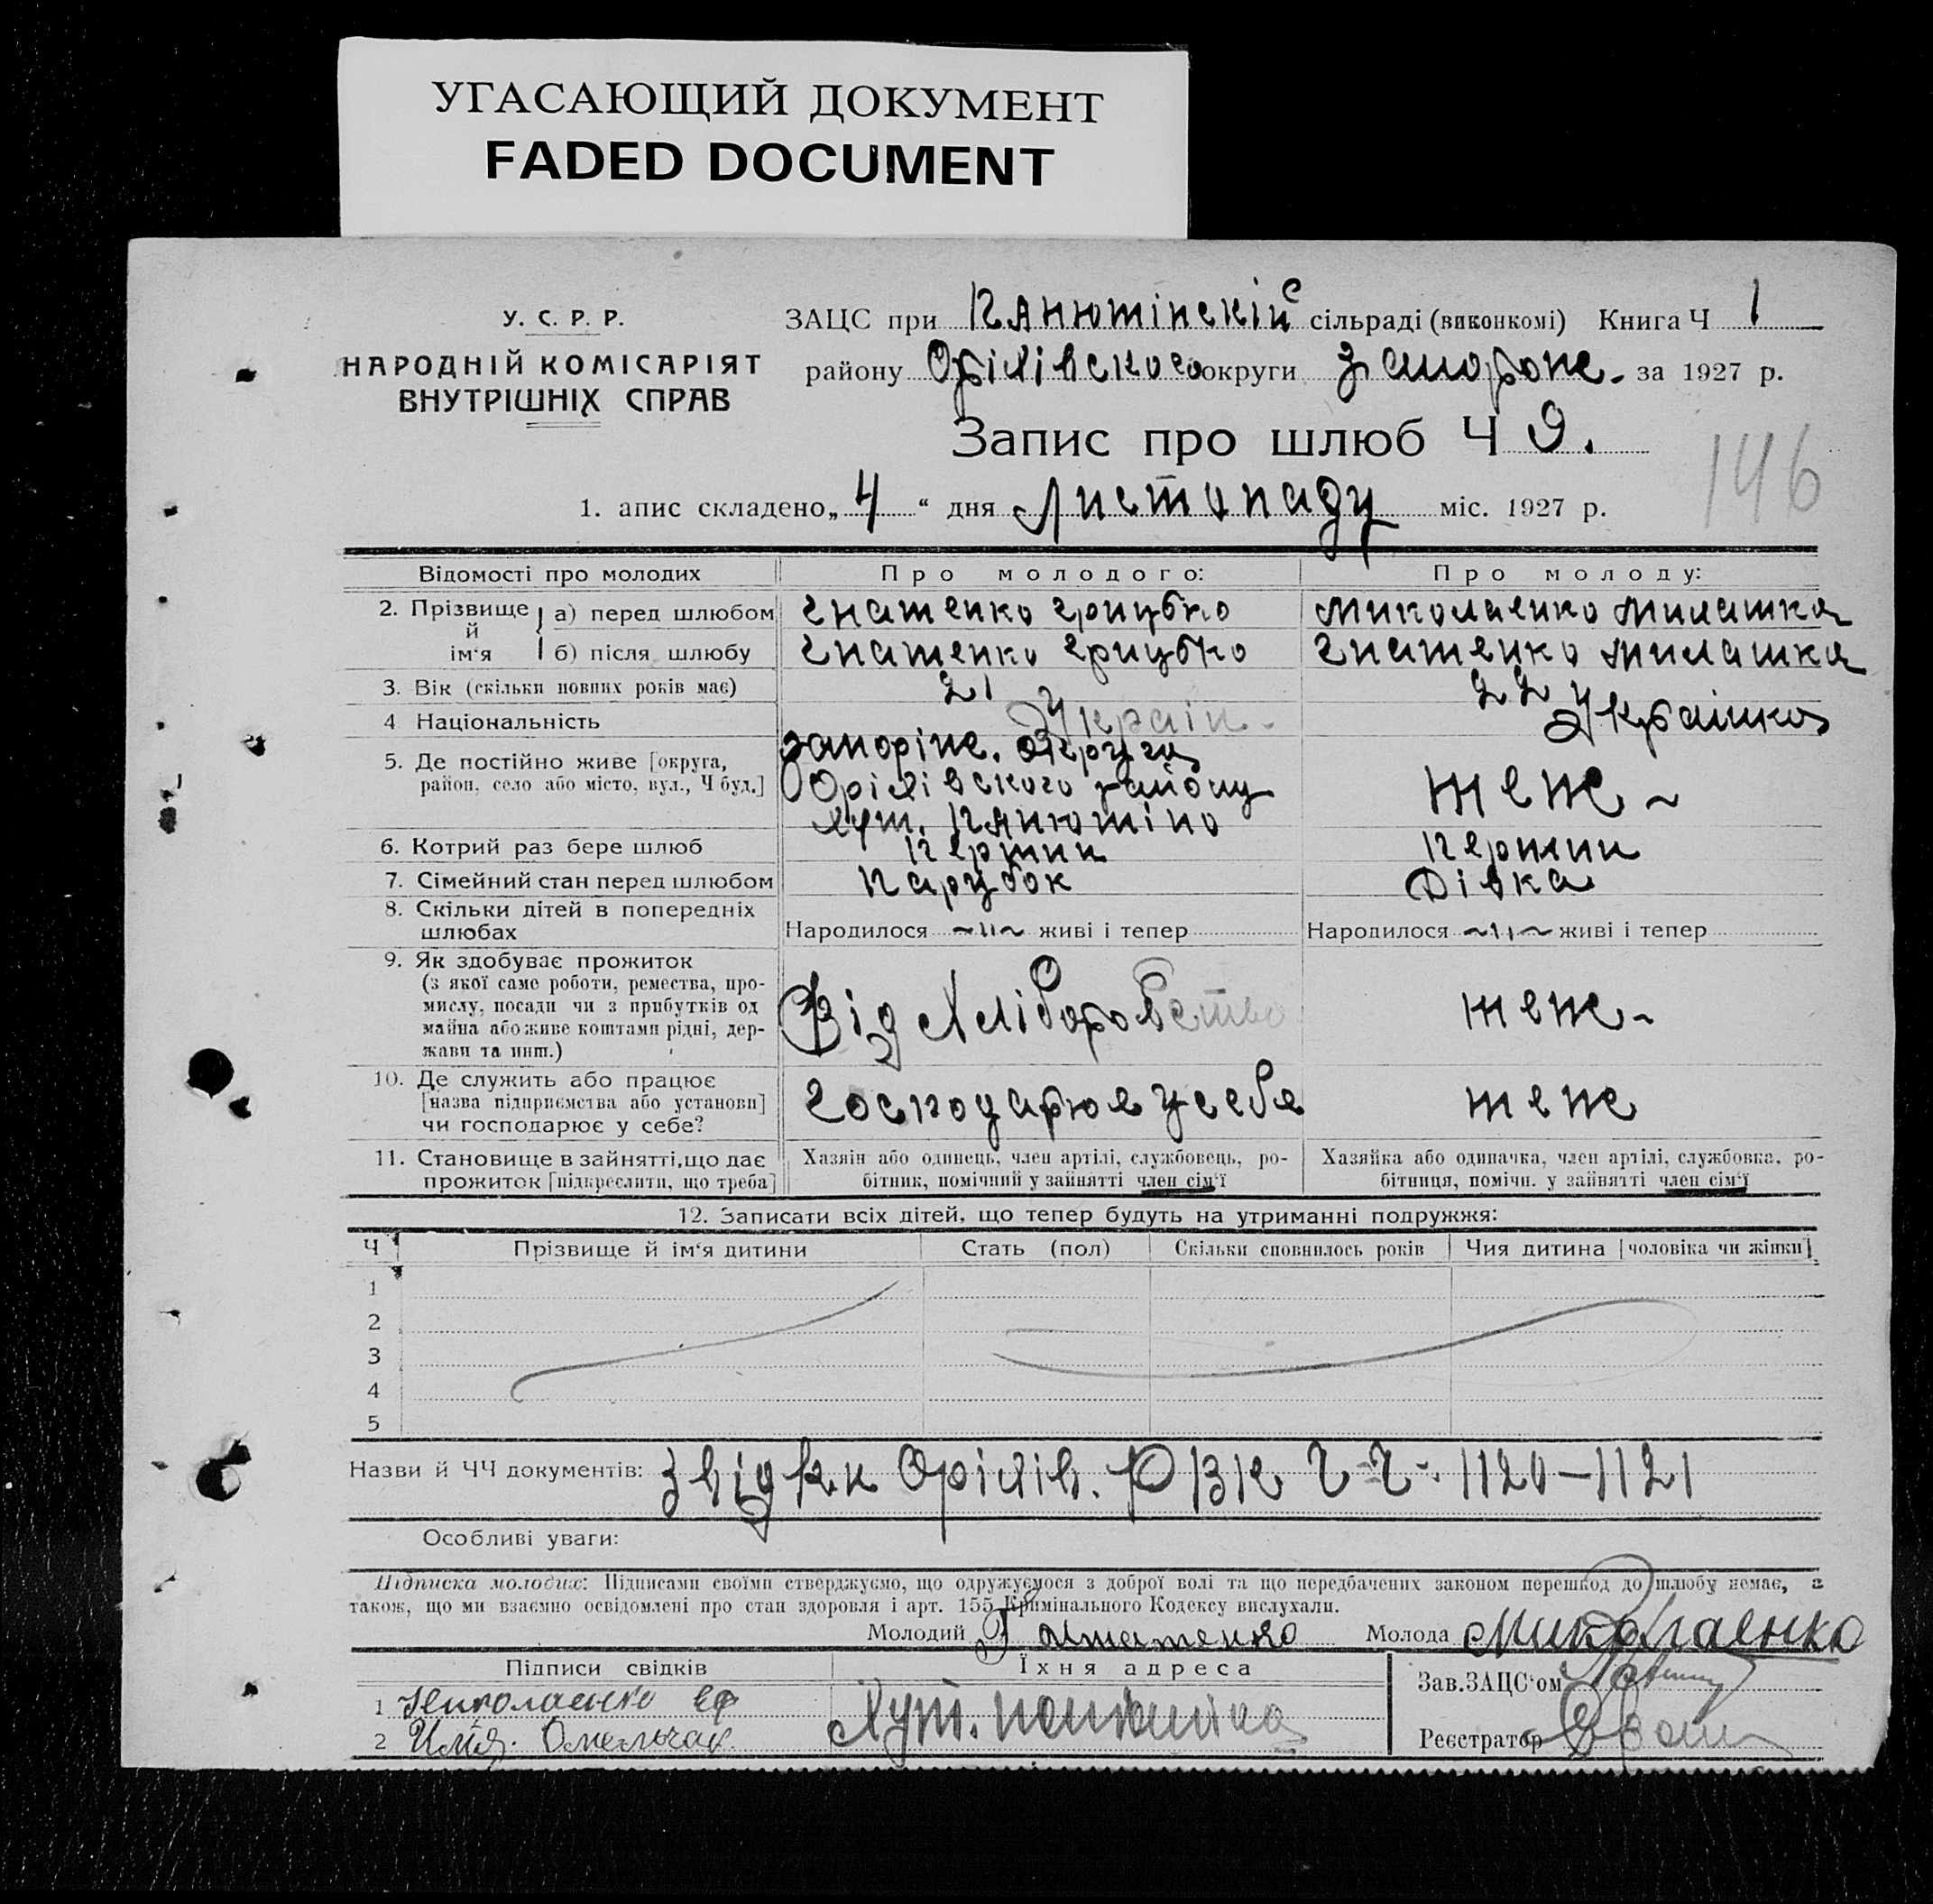 УГАСАЮЩИЙ ДОКУМЕНТ
FADED DOCUMENT
У. С. Р. Р.
НАРОДНІЙ КОМІСАРІЯТ
ВНУТРІШНІХ СПРАВ
ЗАЦС при Канютінскій сільраді (виконкомі) Книга Ч 1
району Орілівского округи Запорож. за 1927 р.
Запис про шлюб Ч 9.
146
1. апис складено „4“ дня Листопаду міс. 1927 р.
Відомості про молодих Про молодого: Про молоду:
2. Прізвище й ім'я а) перед шлюбом Гнатенко Грицько Миколаенко Милашка
б) після шлюбу Гнатенко Грицько Гнатенко Милашка
3. Вік (скільки повних років має) 21 22
4 Національність Україн. Українка
5. Де постійно живе [округа, район, село або місто, вул., Ч буд.] Запоріж. округа Орілівского району хут. Канютіно теж
6. Котрий раз бере шлюб Перший Перший
7. Сімейний стан перед шлюбом Парубок Дівка
8. Скільки дітей в попередніх шлюбах Народилося ~"~ живі і тепер Народилося ~"~ живі і тепер
9. Як здобуває прожиток (з якої саме роботи, ремества, промислу, посади чи з прибутків од майна або живе коштами рідні, держави та инш.) Від Хліборобство теж
10. Де служить або працює [назва підприємства або установи] чи господарює у себе? Господарюе у себе теж
11. Становище в зайнятті, що дає прожиток [підкреслити, що треба] Хазяїн або одинець, член артілі, службовець, робітник, помічний у зайнятті член сім'ї Хазяйка або одиначка, член артілі, службовка, робітниця, помічн. у зайнятті член сім'ї
12. Записати всіх дітей, що тепер будуть на утриманні подружжя:
Ч Прізвище й ім'я дитини Стать (пол) Скільки сповнилось років Чия дитина [чоловіка чи жінки]
1
2
3
4
5
Назви й ЧЧ документів: Орілів. РВК Ч-Ч 1120-1121
Особливі уваги:
Підписка молодих: Підписами своїми стверджуємо, що одружуємося з доброї волі та що передбачених законом перешкод до шлюбу немає, а
також, що ми взаємно освідомлені про стан здоровля і арт. 155 Кримінального Кодексу вислухали.
Молодий Молода Миколаенко
Підписи свідків Їхня адреса Зав. ЗАЦС'ом
1 Николаенко Еф Хут.
2 Омельчак Реєстратор